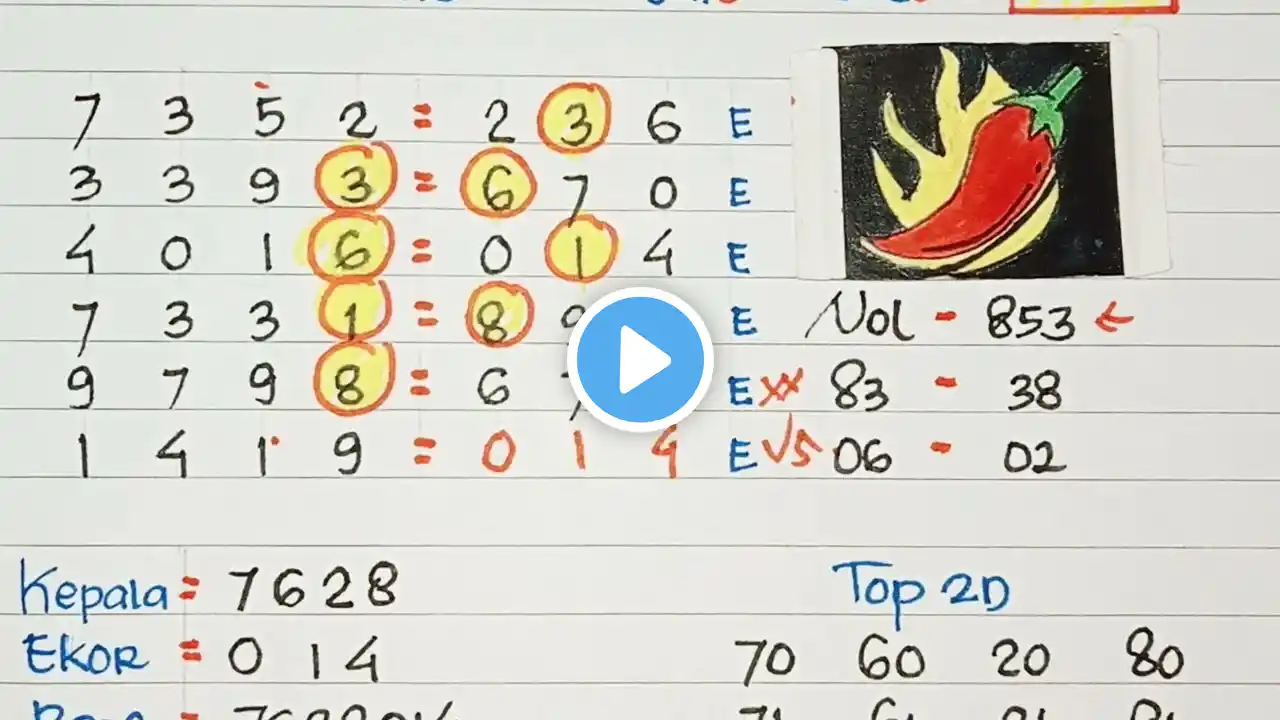 7 3 5 2 = 2 3 6 E
3 3 9 3 = 6 7 0 E
4 0 1 6 = 0 1 4 E
7 3 3 1 = 8 E Nol - 853 ←
9 7 9 8 = 6 E xx 83 - 38
1 4 1 9 = 0 1 4 E √5 06 - 02
Kepala = 7628
Top 2D
EKOR = 0 1 4
70 60 20 80